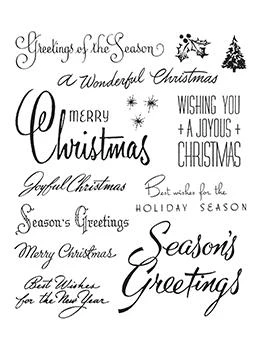 Greetings of the Season
A Wonderful Christmas
MERRY
Christmas
WISHING YOU
+ A JOYOUS +
CHRISTMAS
Joyful Christmas
Best wishes for the
HOLIDAY SEASON
Season's Greetings
Merry Christmas
Season's
Greetings
Best Wishes
for the New Year